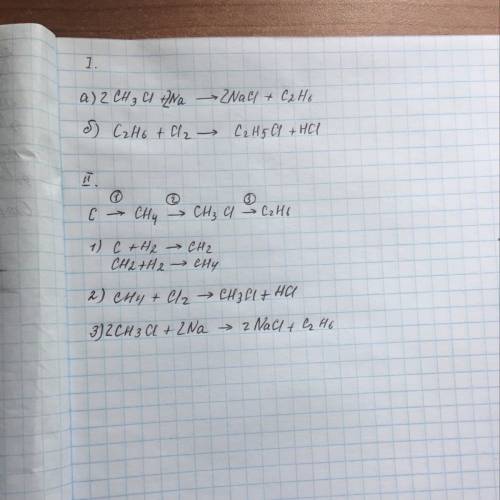 I.
а) 2 CH3Cl + 2Na → 2NaCl + C2H6
б) C2H6 + Cl2 → C2H5Cl + HCl
II.
① ② ③
C → CH4 → CH3Cl → C2H6
1) C + H2 → CH2
CH2 + H2 → CH4
2) CH4 + Cl2 → CH3Cl + HCl
3) 2CH3Cl + 2Na → 2NaCl + C2H6